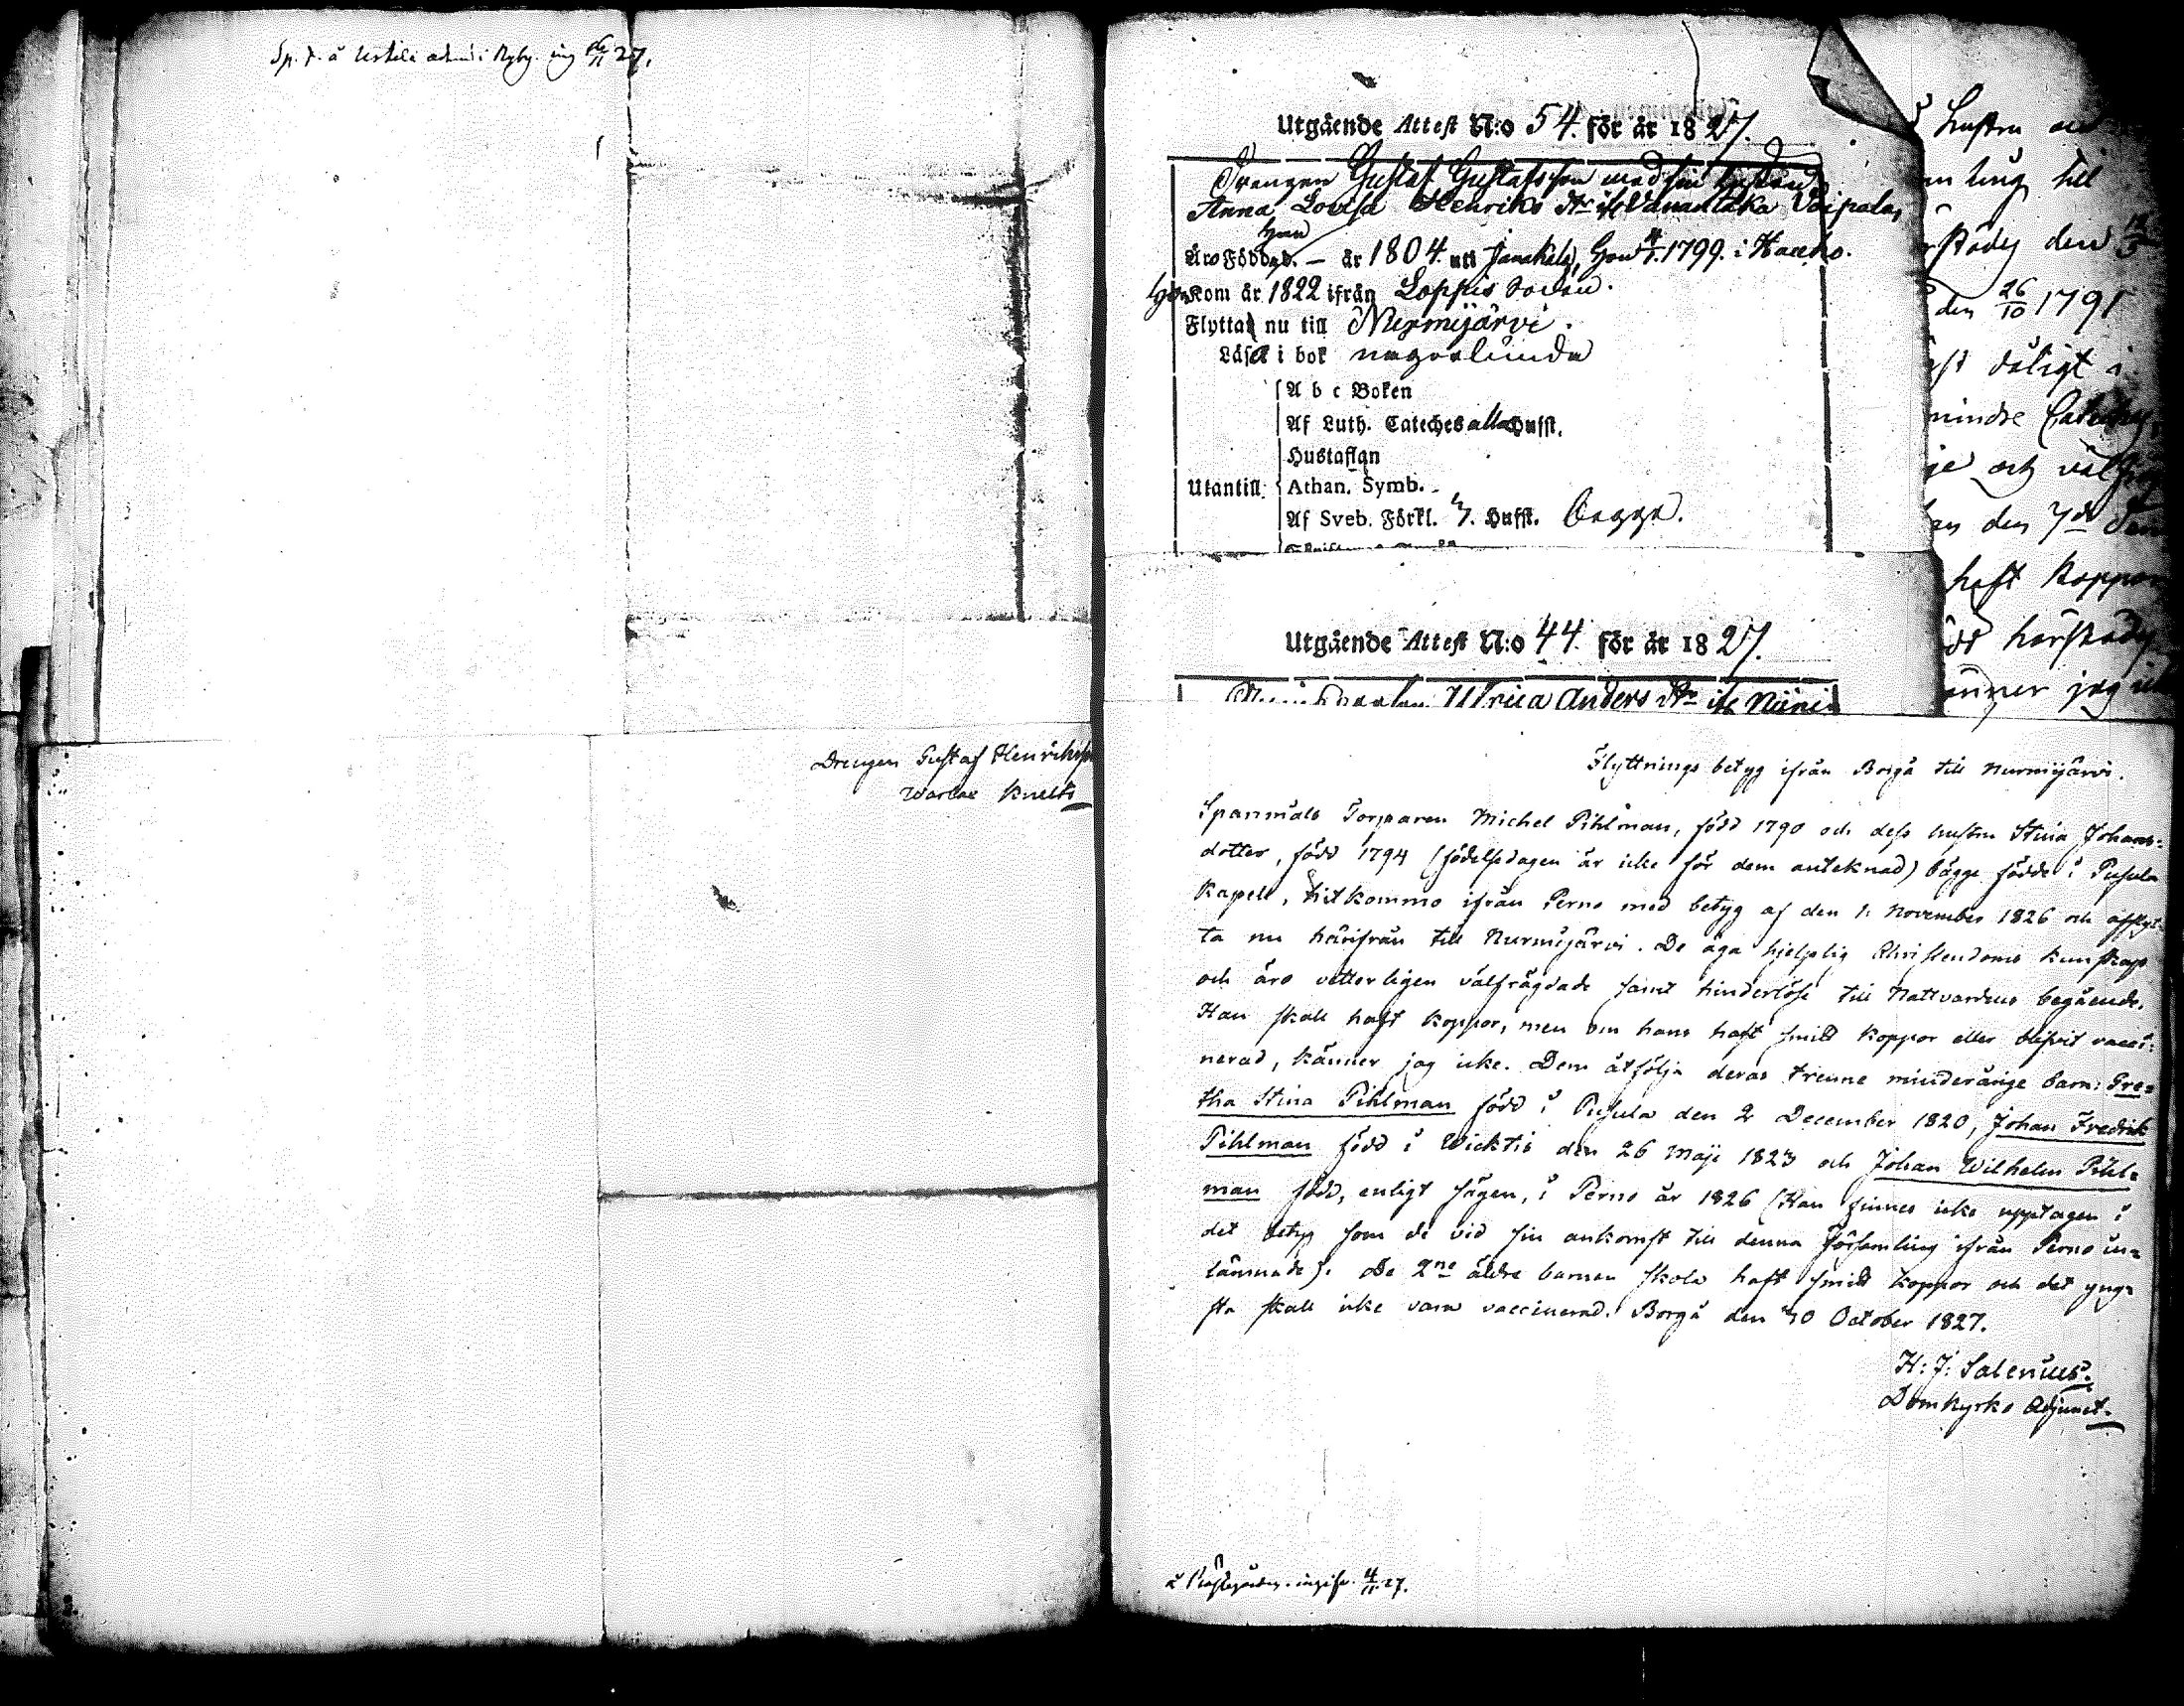 Sp. t. å Uskila i Nyby. ing 26/11 27.
Drengen Gustaf Henrichss
Warlax
Utgående Attest N:o 54. för år 1827.
Drengen Gustaf Gustafsson med sin hustru
Anna Lovisa Henriks dr ifr Vånantaka Voipala,
han
Äro Född – år 1804. uti Janakala, hon 4/7. 1799. i Hauho.
hon kom år 1822 ifrån Loppis Socken.
Flytta nu till Nurmijärvi.
Läsa i bok någorlunda
A b c Boken
Af Luth. Cateches alla Hufst.
Hustaflan
Utantill: Athan. Symb.
Af Sveb. Förkl. 7. Hufst. begge.
hustru
till
den
den 26/10 1791
dåligt i
mindre
je och
en den 7de
haft Koppor
härstädes
känner jag
Utgående Attest N:o 44. för år 1827.
Ulrica Anders dr ifr
Flyttnings betyg ifrån Borgå till Nurmijärvi.
Spanmåls Torparen Michel Pihlman, född 1790 och dess hustru Stina Johans:
dotter, född 1794 (födelsedagen är icke för dem anteknad) bägge födde i Pusula
Kapell, hitkommo ifrån Perno med betyg af den 1: November 1826 och afflyt:
ta nu härifrån till Nurmijärvi. De äga hjelplig Christendoms kunskap
och äro vetterligen välfrägdade samt hinderlöse till Nattvardens begående.
Han skall haft koppor, men om hans haft smitt koppor eller blifvit vacci:
nerad, känner jag icke. Dem åtfölja deras trenne minderårige barn: Gre=
tha Stina Pihlman född i Pusula den 2 December 1820, Johan Fredrik
Pihlman född i Wichtis den 26 Maji 1823 och Johan Wilhelm Pihl=
man född, enligt sägen, i Perno år 1826 (Han finnes icke upptagen i
det betyg som de vid sin ankomst till denna Församling ifrån Perno in=
lämnade). De 2ne äldre barnen skola haft smitt koppor och det yng=
sta skall icke vara vaccinerad. Borgå den 30 October 1827.
H: J: Salenius.
Domkyrko Adjunct.
å Prästgården. 4/11 27.